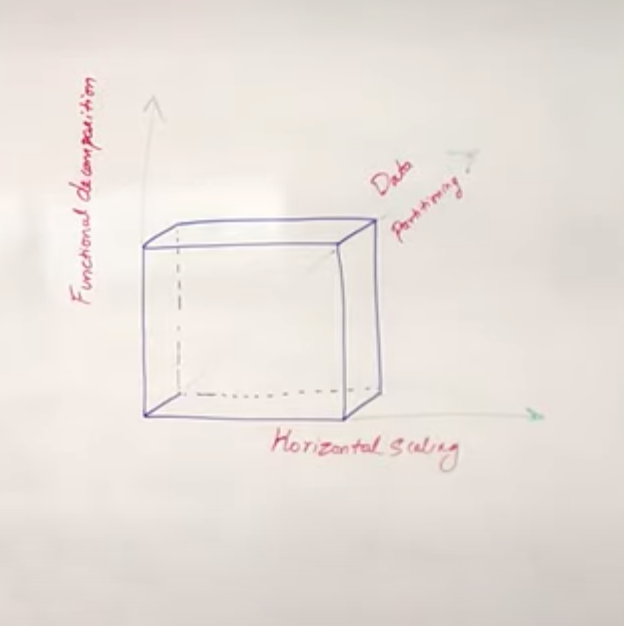 Functional decomposition
Data
Partitioning
Horizontal Scaling